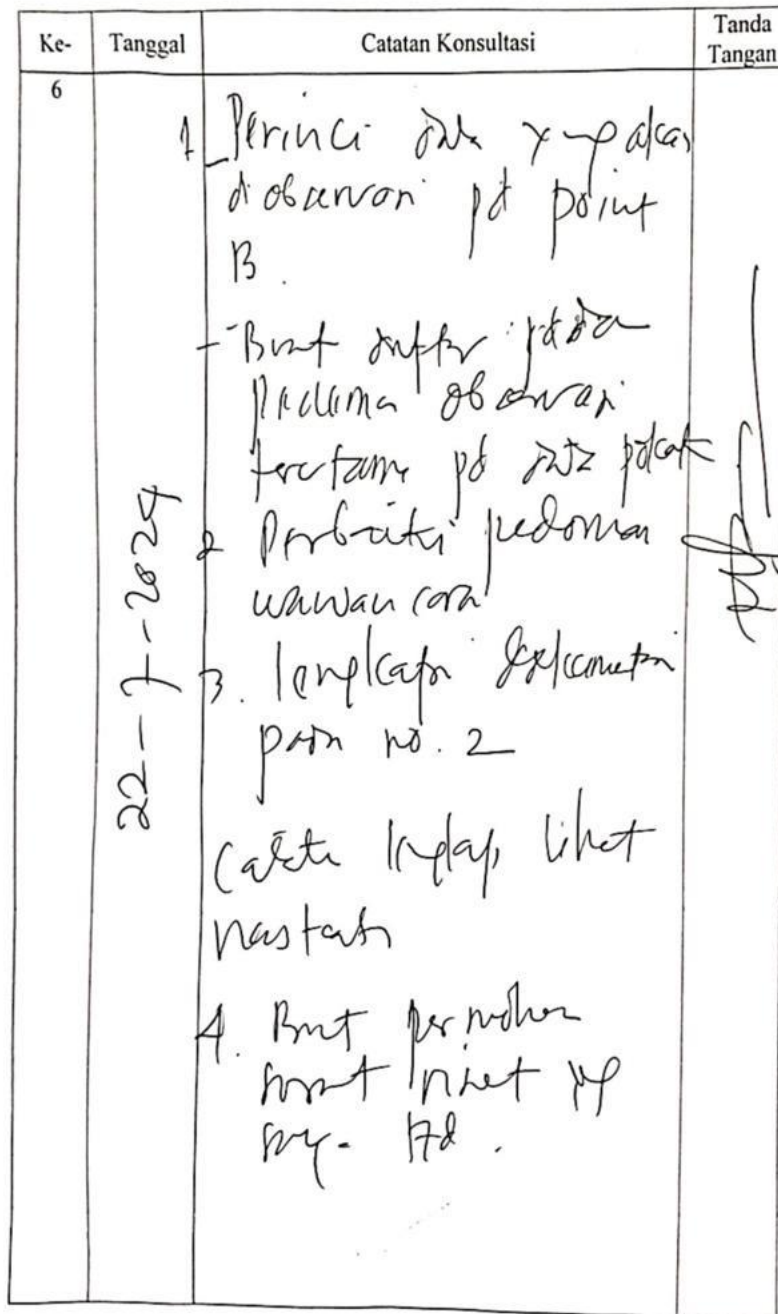 Ke-
Tanggal
Catatan Konsultasi
Tanda
Tangan
6
22-7-2024
1 Perinci data yang akan
di observasi pd point
B.
- Buat daftar pada
pedoman observasi
terutama pd data
2 Perbaiki pedoman
wawancara
3. lengkapi dokumentasi
pada no. 2
Catatan lengkap lihat
naskah
4. Buat permohonan
surat riset yg